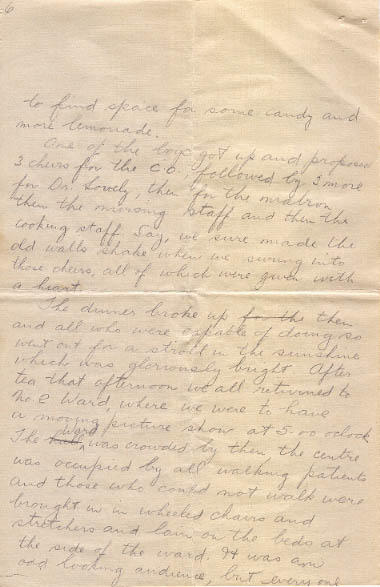 6
to find space for some candy and
more lemonade.
One of the boys got up and proposed
3 cheers for the C.O. followed by 3 more
for Dr. Lovely, then for the matron,
then the nursing staff and then the
cooking staff. Say, we sure made the
old walls shake when we swung into
those cheers, all of which were given with
a heart.
The dinner broke up for the then
and all who were capable of doing so
went out for a stroll in the sunshine
which was gloriously bright. After
tea that afternoon we all returned to
No. 2 Ward, where we were to have
a moving picture show at 5.00 oclock
The hall ward was crowded by then, the centre
was occupied by all walking patients
and those who could not walk were
brought in in wheeled chairs and
stretchers and lain on the beds at
the side of the ward. It was an
odd looking audience, but every one